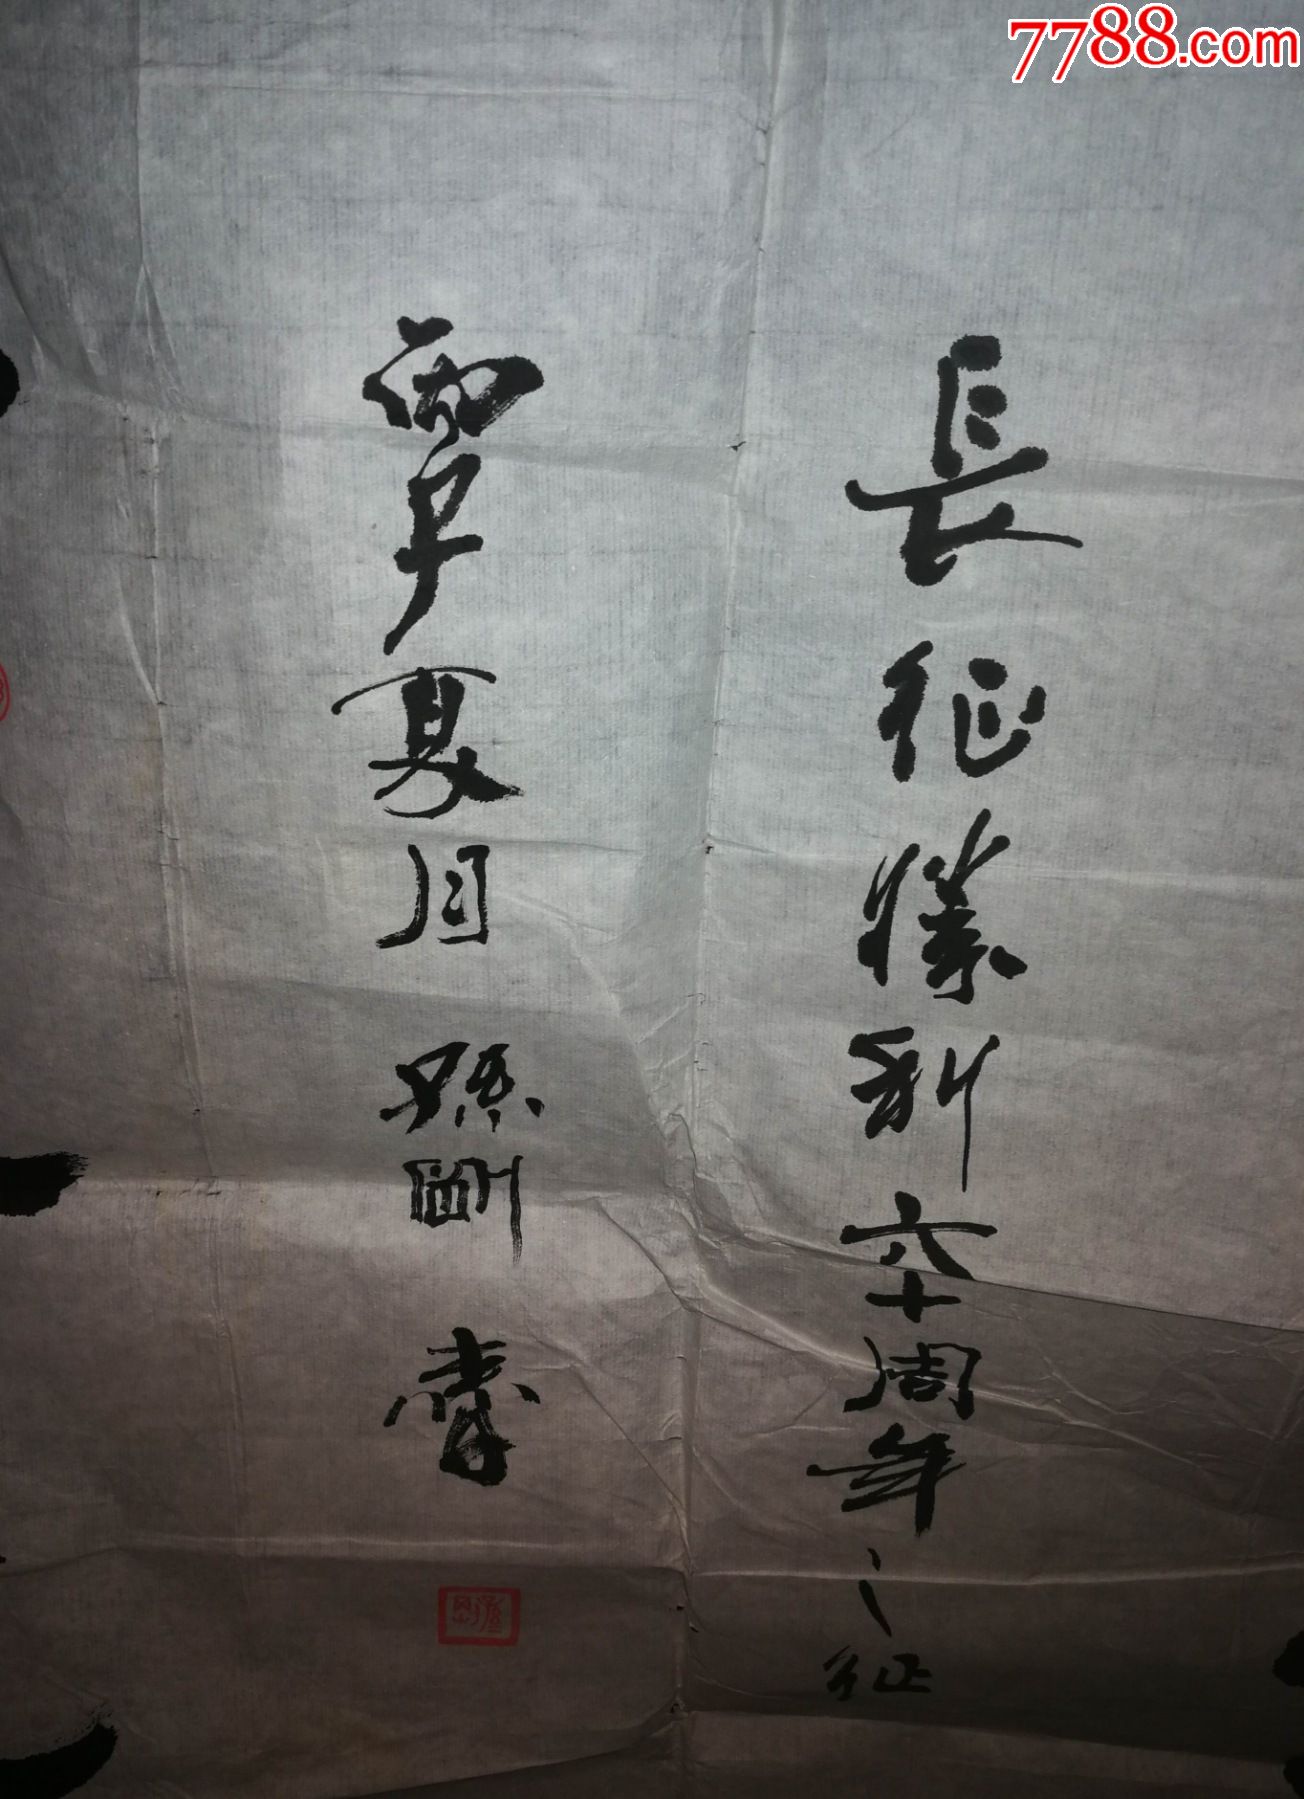 7788.com
長征勝利六十周年之征
丙子夏月 孫剛書